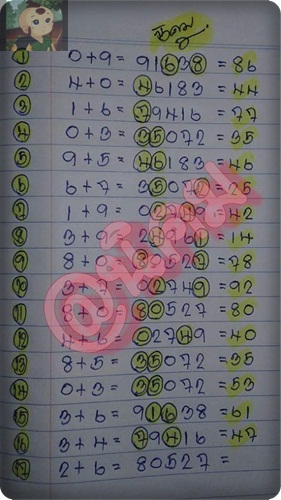 1 0+9 = 91638 = 86
2 4+0 = 46183 = 44
3 1+6 = 79416 = 77
4 0+3 = 35072 = 35
5 9+5 = 46183 = 46
6 6+7 = 35072 = 25
7 1+9 = 02749 = 42
8 3+9 = 24161 = 14
9 8+0 = 80527 = 78
10 3+7 = 02749 = 92
11 8+0 = 80527 = 80
12 4+6 = 02749 = 40
13 8+5 = 35072 = 35
14 0+3 = 35072 = 53
15 3+6 = 91638 = 61
16 3+4 = 79416 = 47
17 2+6 = 80527 =